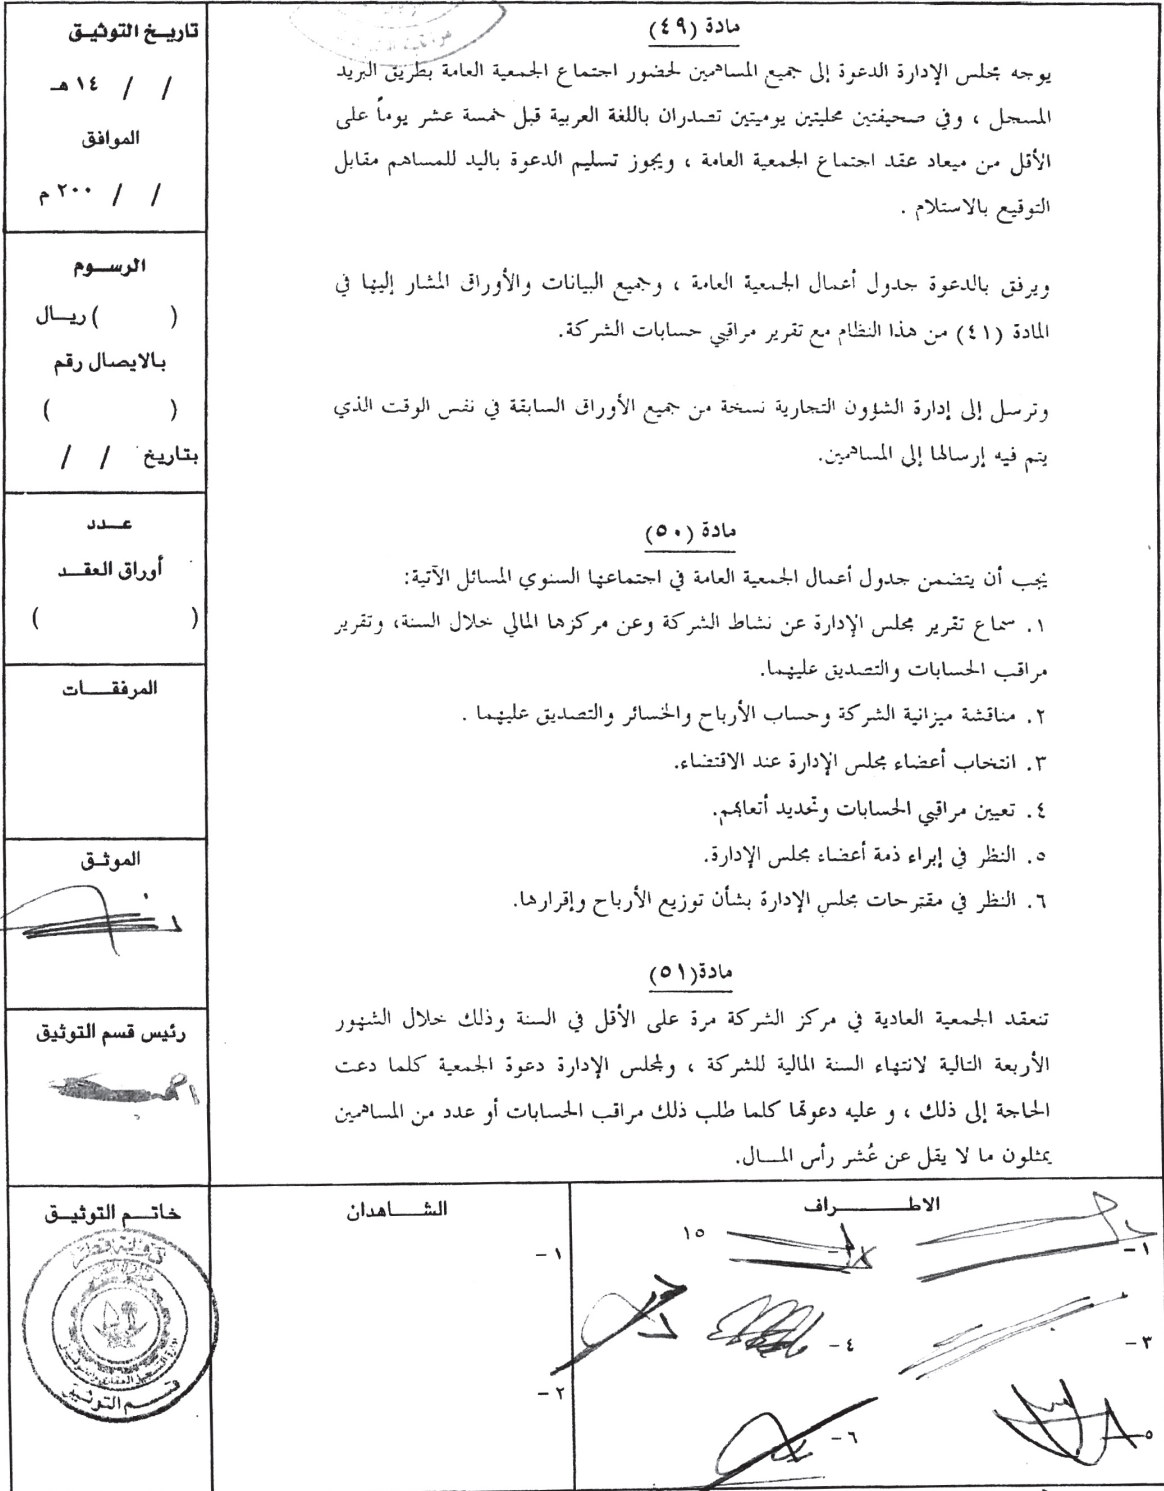 مادة (٤٩)
يوجه مجلس الإدارة الدعوة إلى جميع المساهمين لحضور اجتماع الجمعية العامة بطريق البريد
المسجل ، وفي صحيفتين محليتين يوميتين تصدران باللغة العربية قبل خمسة عشر يوماً على
الأقل من ميعاد عقد اجتماع الجمعية العامة ، ويجوز تسليم الدعوة باليد للمساهم مقابل
التوقيع بالاستلام .
ويرفق بالدعوة جدول أعمال الجمعية العامة ، وجميع البيانات والأوراق المشار إليها في
المادة (٤١) من هذا النظام مع تقرير مراقبي حسابات الشركة.
وترسل إلى إدارة الشؤون التجارية نسخة من جميع الأوراق السابقة في نفس الوقت الذي
يتم فيه إرسالها إلى المساهمين.
مادة (٥٠)
يجب أن يتضمن جدول أعمال الجمعية العامة في اجتماعها السنوي المسائل الآتية:
١. سماع تقرير مجلس الإدارة عن نشاط الشركة وعن مركزها المالي خلال السنة، وتقرير
مراقب الحسابات والتصديق عليهما.
٢. مناقشة ميزانية الشركة وحساب الأرباح والخسائر والتصديق عليهما .
٣. انتخاب أعضاء مجلس الإدارة عند الاقتضاء.
٤. تعيين مراقبي الحسابات وتحديد أتعابهم.
٥. النظر في إبراء ذمة أعضاء مجلس الإدارة.
٦. النظر في مقترحات مجلس الإدارة بشأن توزيع الأرباح وإقرارها.
مادة(٥١)
تنعقد الجمعية العادية في مركز الشركة مرة على الأقل في السنة وذلك خلال الشهور
الأربعة التالية لانتهاء السنة المالية للشركة ، ولمجلس الإدارة دعوة الجمعية كلما دعت
الحاجة إلى ذلك ، و عليه دعوتها كلما طلب ذلك مراقب الحسابات أو عدد من المساهمين
يمثلون ما لا يقل عن عُشر رأس المـــال.
تاريــخ التوثيـق
/ / ١٤ هـ
الموافق
/ / ٢٠٠ م
الرســـوم
( ) ريــال
بـالايصال رقم
( )
بتاريخ / /
عـــدد
أوراق العقــد
( )
المرفقــــات
الموثـق
رئيس قسم التوثيق
خاتـــم التوثيــق
دولة قطر
قسم التوثيق
الشـــاهدان
١ -
٢ -
الاطـــــــراف
١ -
١٥
٣ -
٤ -
٥ -
٦ -